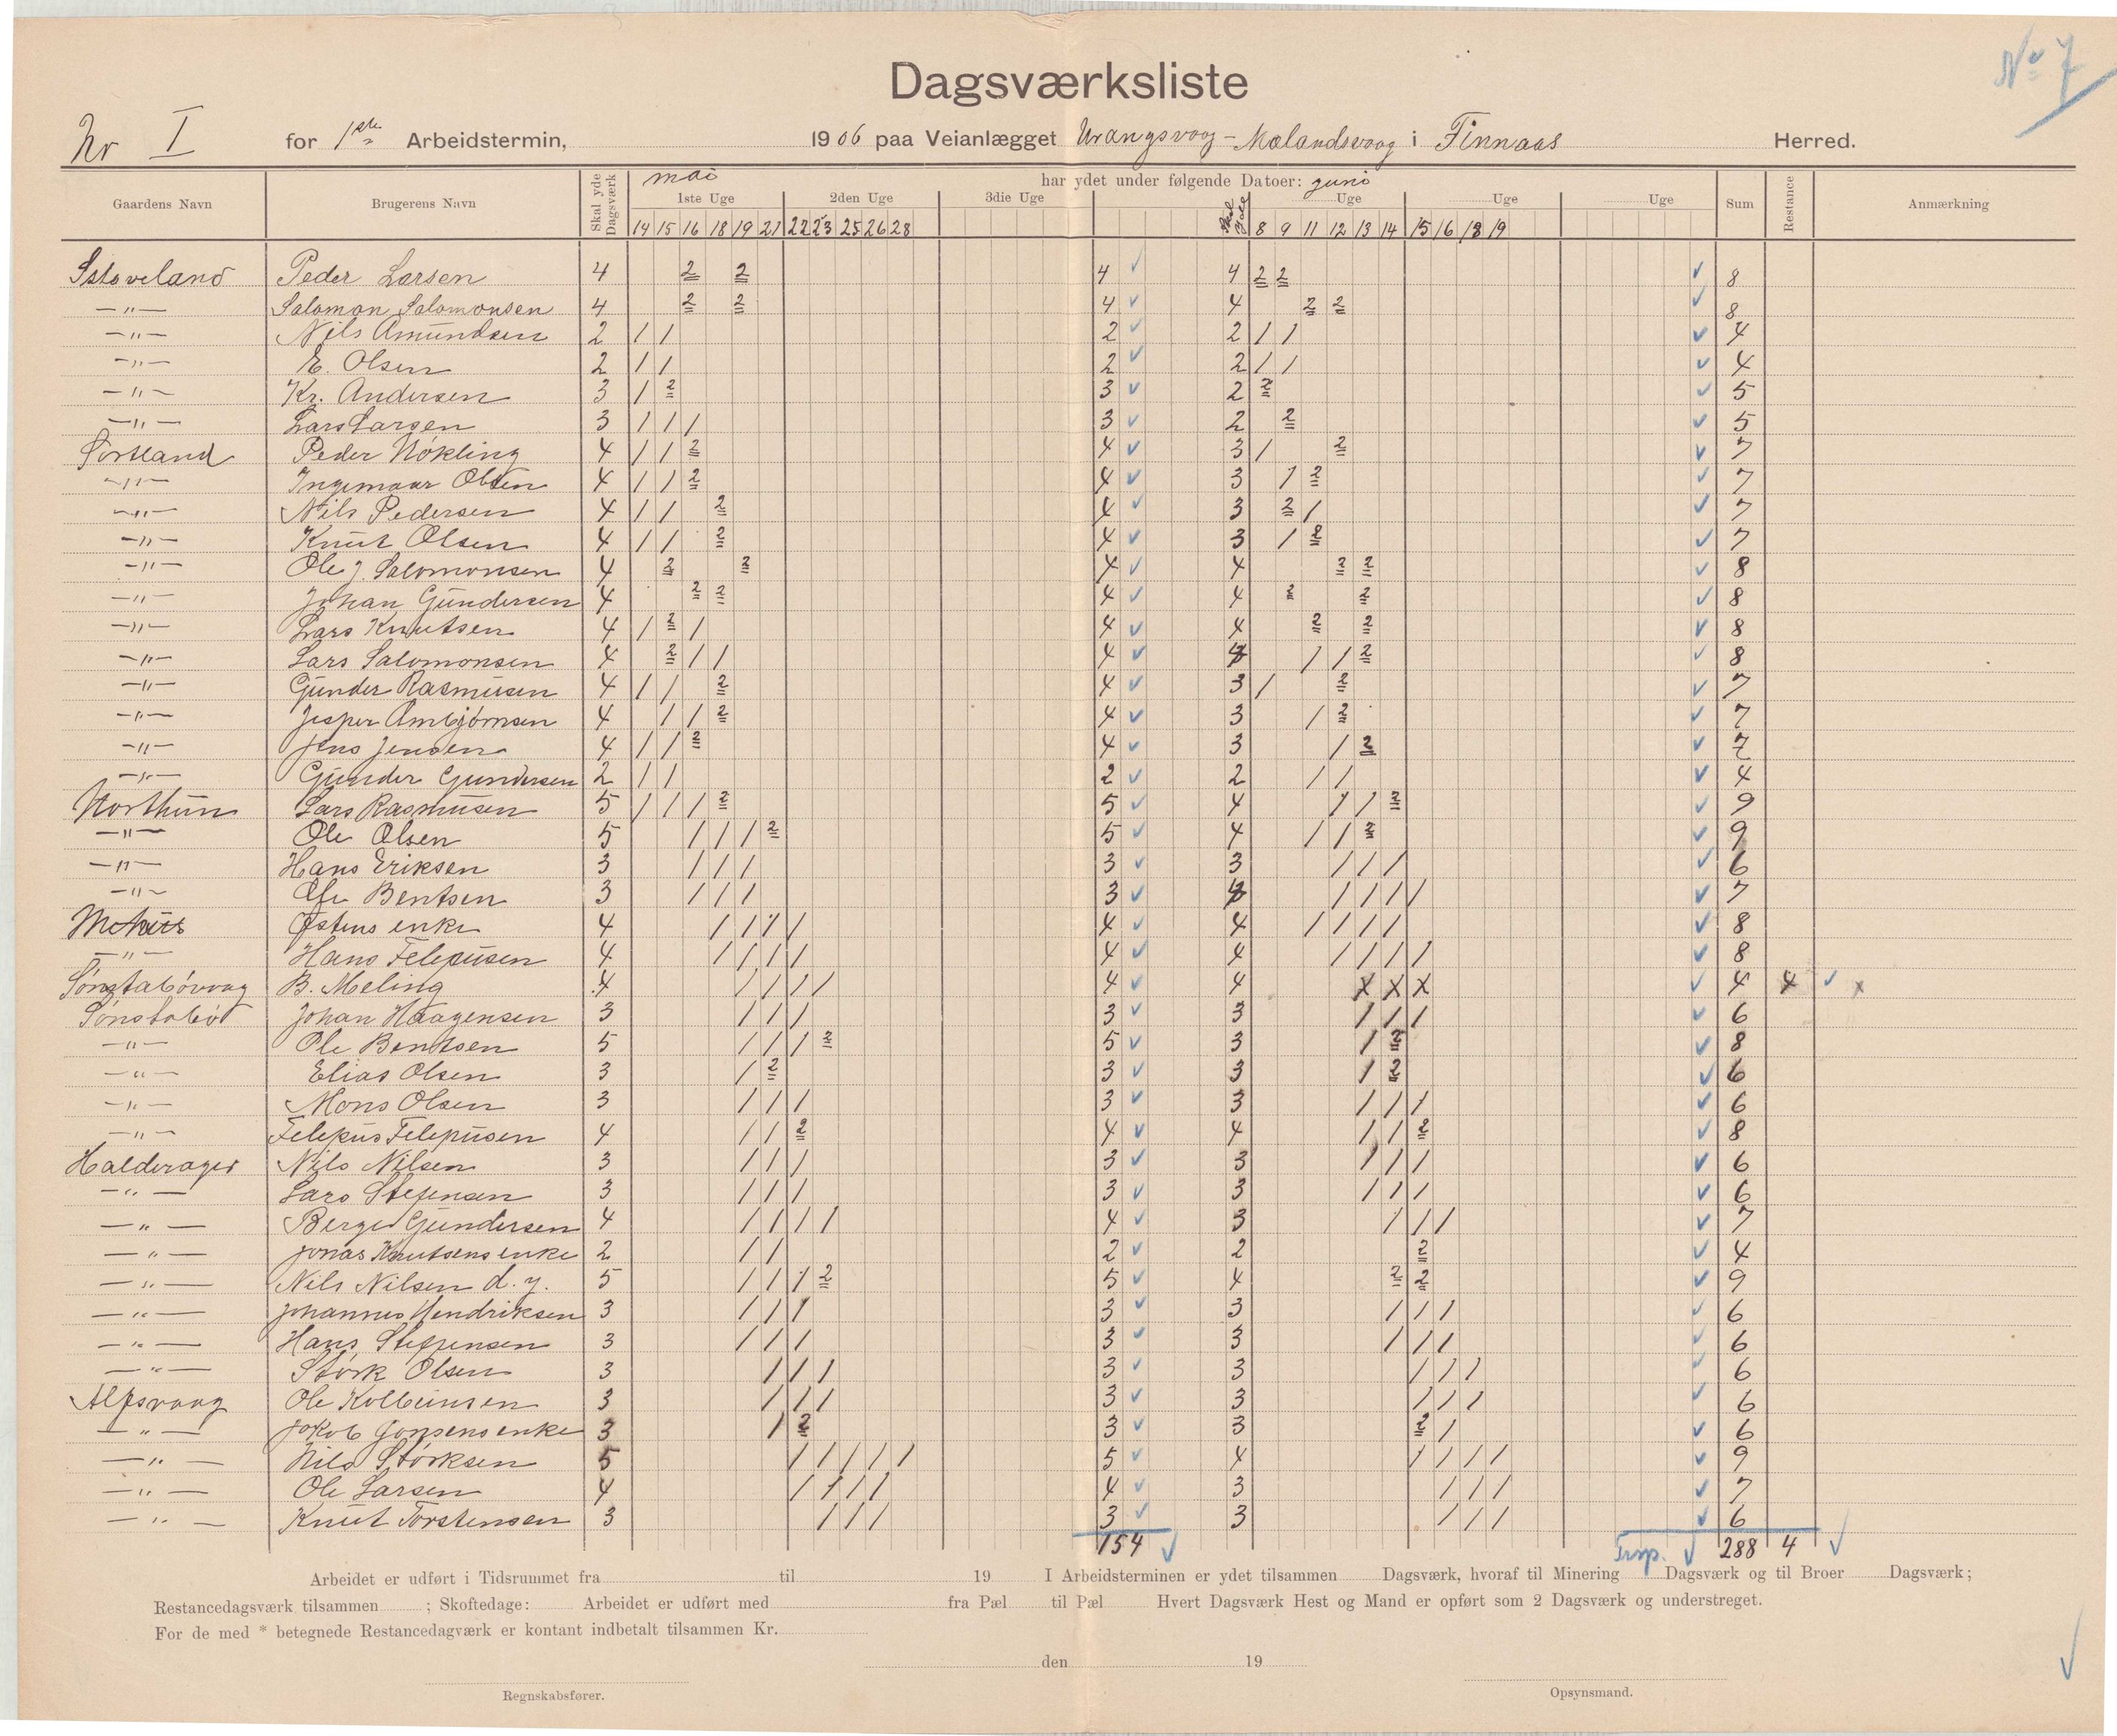 No 7
Dagsværksliste
Nr I for 1ste Arbeidstermin, 1906 paa Veianlægget Urangsvaag - Mælandsvaag i Finnaas Herred.
Gaardens Navn Brugerens Navn Skal yde Dagsværk mai har ydet under følgende Datoer: juni Sum Restance Anmærkning
1ste Uge 2den Uge 3die Uge Skal yde Uge Uge Uge
14 15 16 18 19 21 22 23 25 26 28 8 9 11 12 13 14 15 16 18 19
Peder Larsen 4 2 2 4 ✓ 4 2 2 ✓ 8
—"— Salamon Salamonsen 4 2 2 4 ✓ 4 2 2 ✓ 8
—"— Nils Amundsen 2 / / 2 ✓ 2 / / ✓ 4
—"— E. Olsen 2 / / 2 ✓ 2 / / ✓ 4
—"— Kr. Andersen 3 / 2 3 ✓ 2 2 ✓ 5
—"— Lars Larsen 3 / / / 3 ✓ 2 2 ✓ 5
Sortland Peder Nökling 4 / / 2 4 ✓ 3 / 2 ✓ 7
—"— Ingemaar Olsen 4 / / 2 4 ✓ 3 / 2 ✓ 7
—"— Nils Pedersen 4 / / 2 4 ✓ 3 2 / ✓ 7
—"— Knut Olsen 4 / / 2 4 ✓ 3 / 2 ✓ 7
—"— Ole J. Salomonsen 4 2 2 4 ✓ 4 2 2 ✓ 8
—"— Johan Gundersen 4 2 2 4 ✓ 4 2 2 ✓ 8
—"— Lars Knutsen 4 / 2 / 4 ✓ 4 2 2 ✓ 8
—"— Lars Salomonsen 4 2 / / 4 ✓ 4 / / 2 ✓ 8
—"— Gunder Rasmusen 4 / / 2 4 ✓ 3 / 2 ✓ 7
—"— Jesper Ambjörnsen 4 / / 2 4 ✓ 3 / 2 ✓ 7
—"— Jens Jensen 4 / / 2 4 ✓ 3 / 2 ✓ 7
—"— Gunder Gundersen 2 / / 2 ✓ 2 / / ✓ 4
Northun Lars Rasmusen 5 / / / 2 5 ✓ 4 / / 2 ✓ 9
—"— Ole Olsen 5 / / / 2 5 ✓ 4 / / 2 ✓ 9
—"— Hans Eriksen 3 / / / 3 ✓ 3 / / / ✓ 6
—"— Ole Bentsen 3 / / / 3 ✓ 4 / / / / ✓ 7
Østens enke 4 / / / / 4 ✓ 4 / / / / ✓ 8
—"— Hans Felepusen 4 / / / / 4 ✓ 4 / / / / ✓ 8
Sönstabövaag B. Meling 4 / / / / 4 ✓ 4 x x x ✓ 4 4 ✓ x
Sönstabö Johan Haagensen 3 / / / 3 ✓ 3 / / / ✓ 6
—"— Ole Bentsen 5 / / / 2 5 ✓ 3 / 2 ✓ 8
—"— Elias Olsen 3 / 2 3 ✓ 3 / 2 ✓ 6
—"— Mons Olsen 3 / / / 3 ✓ 3 / / / ✓ 6
—"— Felepus Felepusen 4 / / 2 4 ✓ 4 / / 2 ✓ 8
Halderager Nils Nilsen 3 / / / 3 ✓ 3 / / / ✓ 6
—"— Lars Stefensen 3 / / / 3 ✓ 3 / / / ✓ 6
—"— Berge Gundersen 4 / / / / 4 ✓ 3 / / / ✓ 7
—"— Jonas Knutsens enke 2 / / 2 ✓ 2 2 ✓ 4
—"— Nils Nilsen d.y. 5 / / / 2 5 ✓ 4 2 2 ✓ 9
—"— Johannes Hendriksen 3 / / / 3 ✓ 3 / / / ✓ 6
—"— Hans Stefensen 3 / / / 3 ✓ 3 / / / ✓ 6
—"— Störk Olsen 3 / / / 3 ✓ 3 / / / ✓ 6
Alfsvaag Ole Kolbeinsen 3 / / / 3 ✓ 3 / / / ✓ 6
—"— Jokob Jonsens enke 3 / 2 3 ✓ 3 2 / ✓ 6
—"— Nils Störksen 5 / / / / / 5 ✓ 4 / / / / ✓ 9
—"— Ole Larsen 4 / / / / 4 ✓ 3 / / / ✓ 7
—"— Knut Torstensen 3 / / / 3 ✓ 3 / / / ✓ 6
154 ✓ Trsp. ✓ 288 4 ✓
Arbeidet er udført i Tidsrummet fra til 19 I Arbeidsterminen er ydet tilsammen Dagsværk, hvoraf til Minering Dagsværk og til Broer Dagsværk;
Restancedagsværk tilsammen ; Skoftedage: Arbeidet er udført med fra Pæl til Pæl Hvert Dagsværk Hest og Mand er opført som 2 Dagsværk og understreget.
For de med * betegnede Restancedagværk er kontant indbetalt tilsammen Kr.
den 19
Regnskabsfører. Opsynsmand.